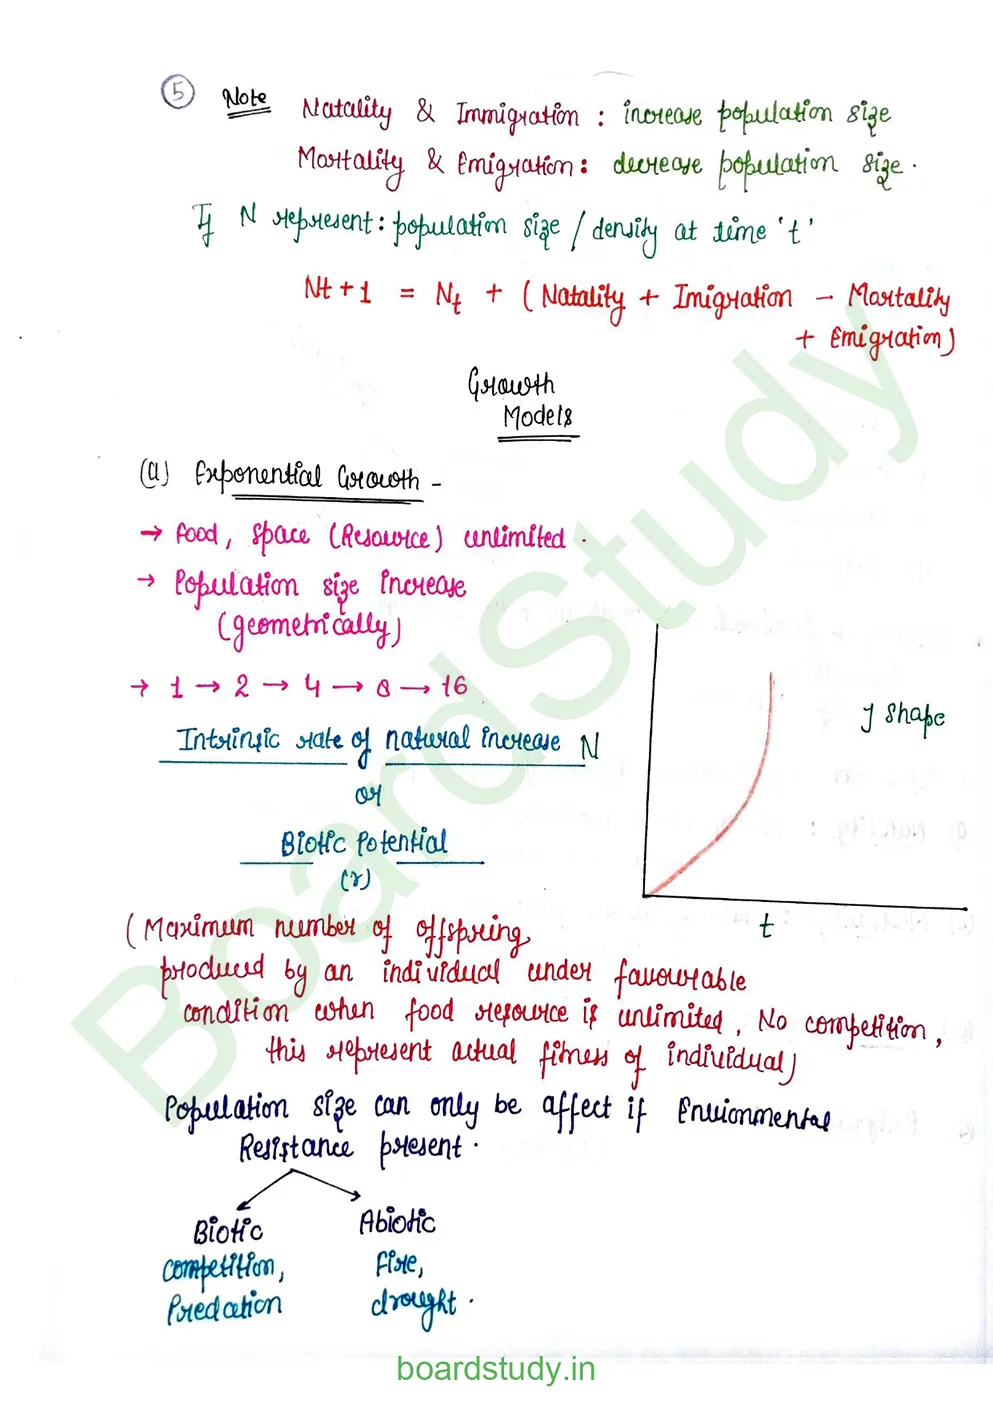 5 Note Natality & Immigration : increase population size
Mortality & Emigration : decrease population size.
If N represent : population size / density at time 't'
Nt+1 = Nt + (Natality + Imigration - Mortality
+ Emigration)
Growth
Models
(a) Exponential Growth -
→ Food, space (Resource) unlimited.
→ Population size increase
(geometrically)
→ 1 → 2 → 4 → 8 → 16
J shape
Intrinsic rate of natural increase
N
or
Biotic Potential
(r)
t
(Maximum number of offspring
produced by an individual under favourable
condition when food resource is unlimited, No competition,
this represent actual fitness of individual)
Population size can only be affect if Envionmental
Resistance present.
Biotic Abiotic
competition, Fire,
Predation drought.
BoardStudy
boardstudy.in